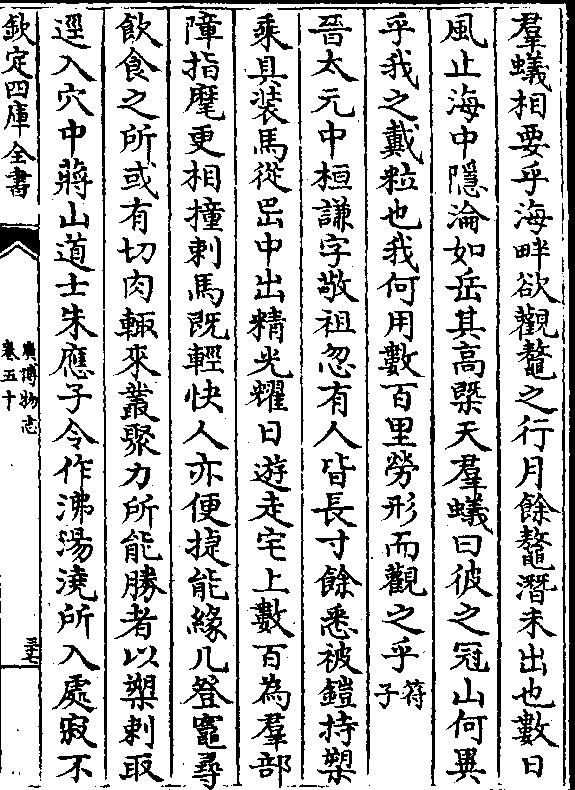 羣蟻相要乎海畔欲觀鼇之行月餘鼇潛未出也數日
風止海中隱淪如岳其高槩天羣蟻曰彼之冠山何異
乎我之戴粒也我何用數百里勞形而觀之乎符子
晉太元中桓謙字敬祖忽有人皆長寸餘悉被鎧持槊
乘具装馬從岊中出精光耀日遊走宅上數百為羣部
障指麾更相撞刺馬既輕快人亦便捷能緣几登竈尋
飲食之所或有切肉輙來叢聚力所能勝者以槊刺取
逕入穴中蔣山道士朱應子令作沸湯澆所入處寂不
欽定四庫全書
廣博物志
卷五十